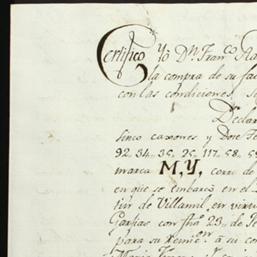 Certifico Yo Dn. Franco. Ra
la compra de su fa
con las condiciones, si
Declar
sinco caxones y dose
92. 34. 35. 25. 117. 58. 5
marca M,Y, corre de
en que se embarcó en el
de Villamil, en virtu
Garsias con fha 23 de
para su Remic.on á su con